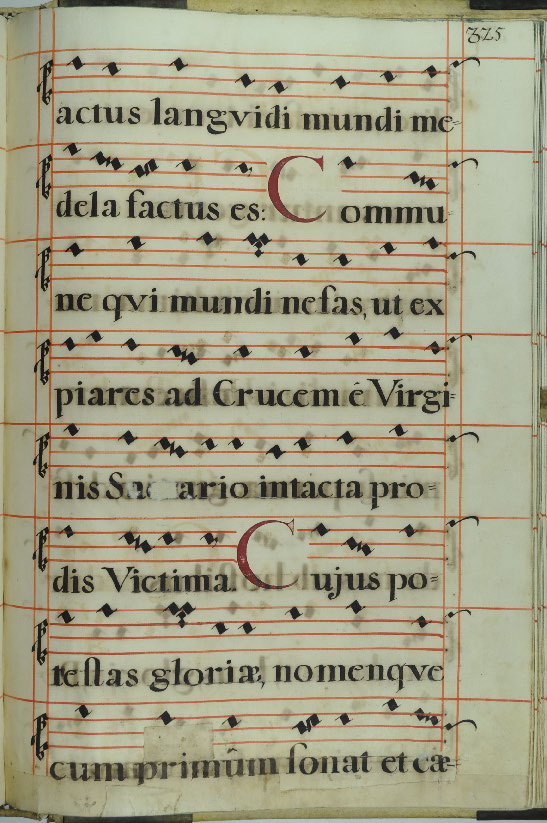 325
actus langvidi mundi me-
dela factus es: Commu-
ne qvi mundi nefas, ut ex
piares ad Crucem è Virgi-
nis Sacrario intacta pro-
dis Victima. Cujus po-
testas gloriæ, nomenqve
cum primûm sonat et cæ-